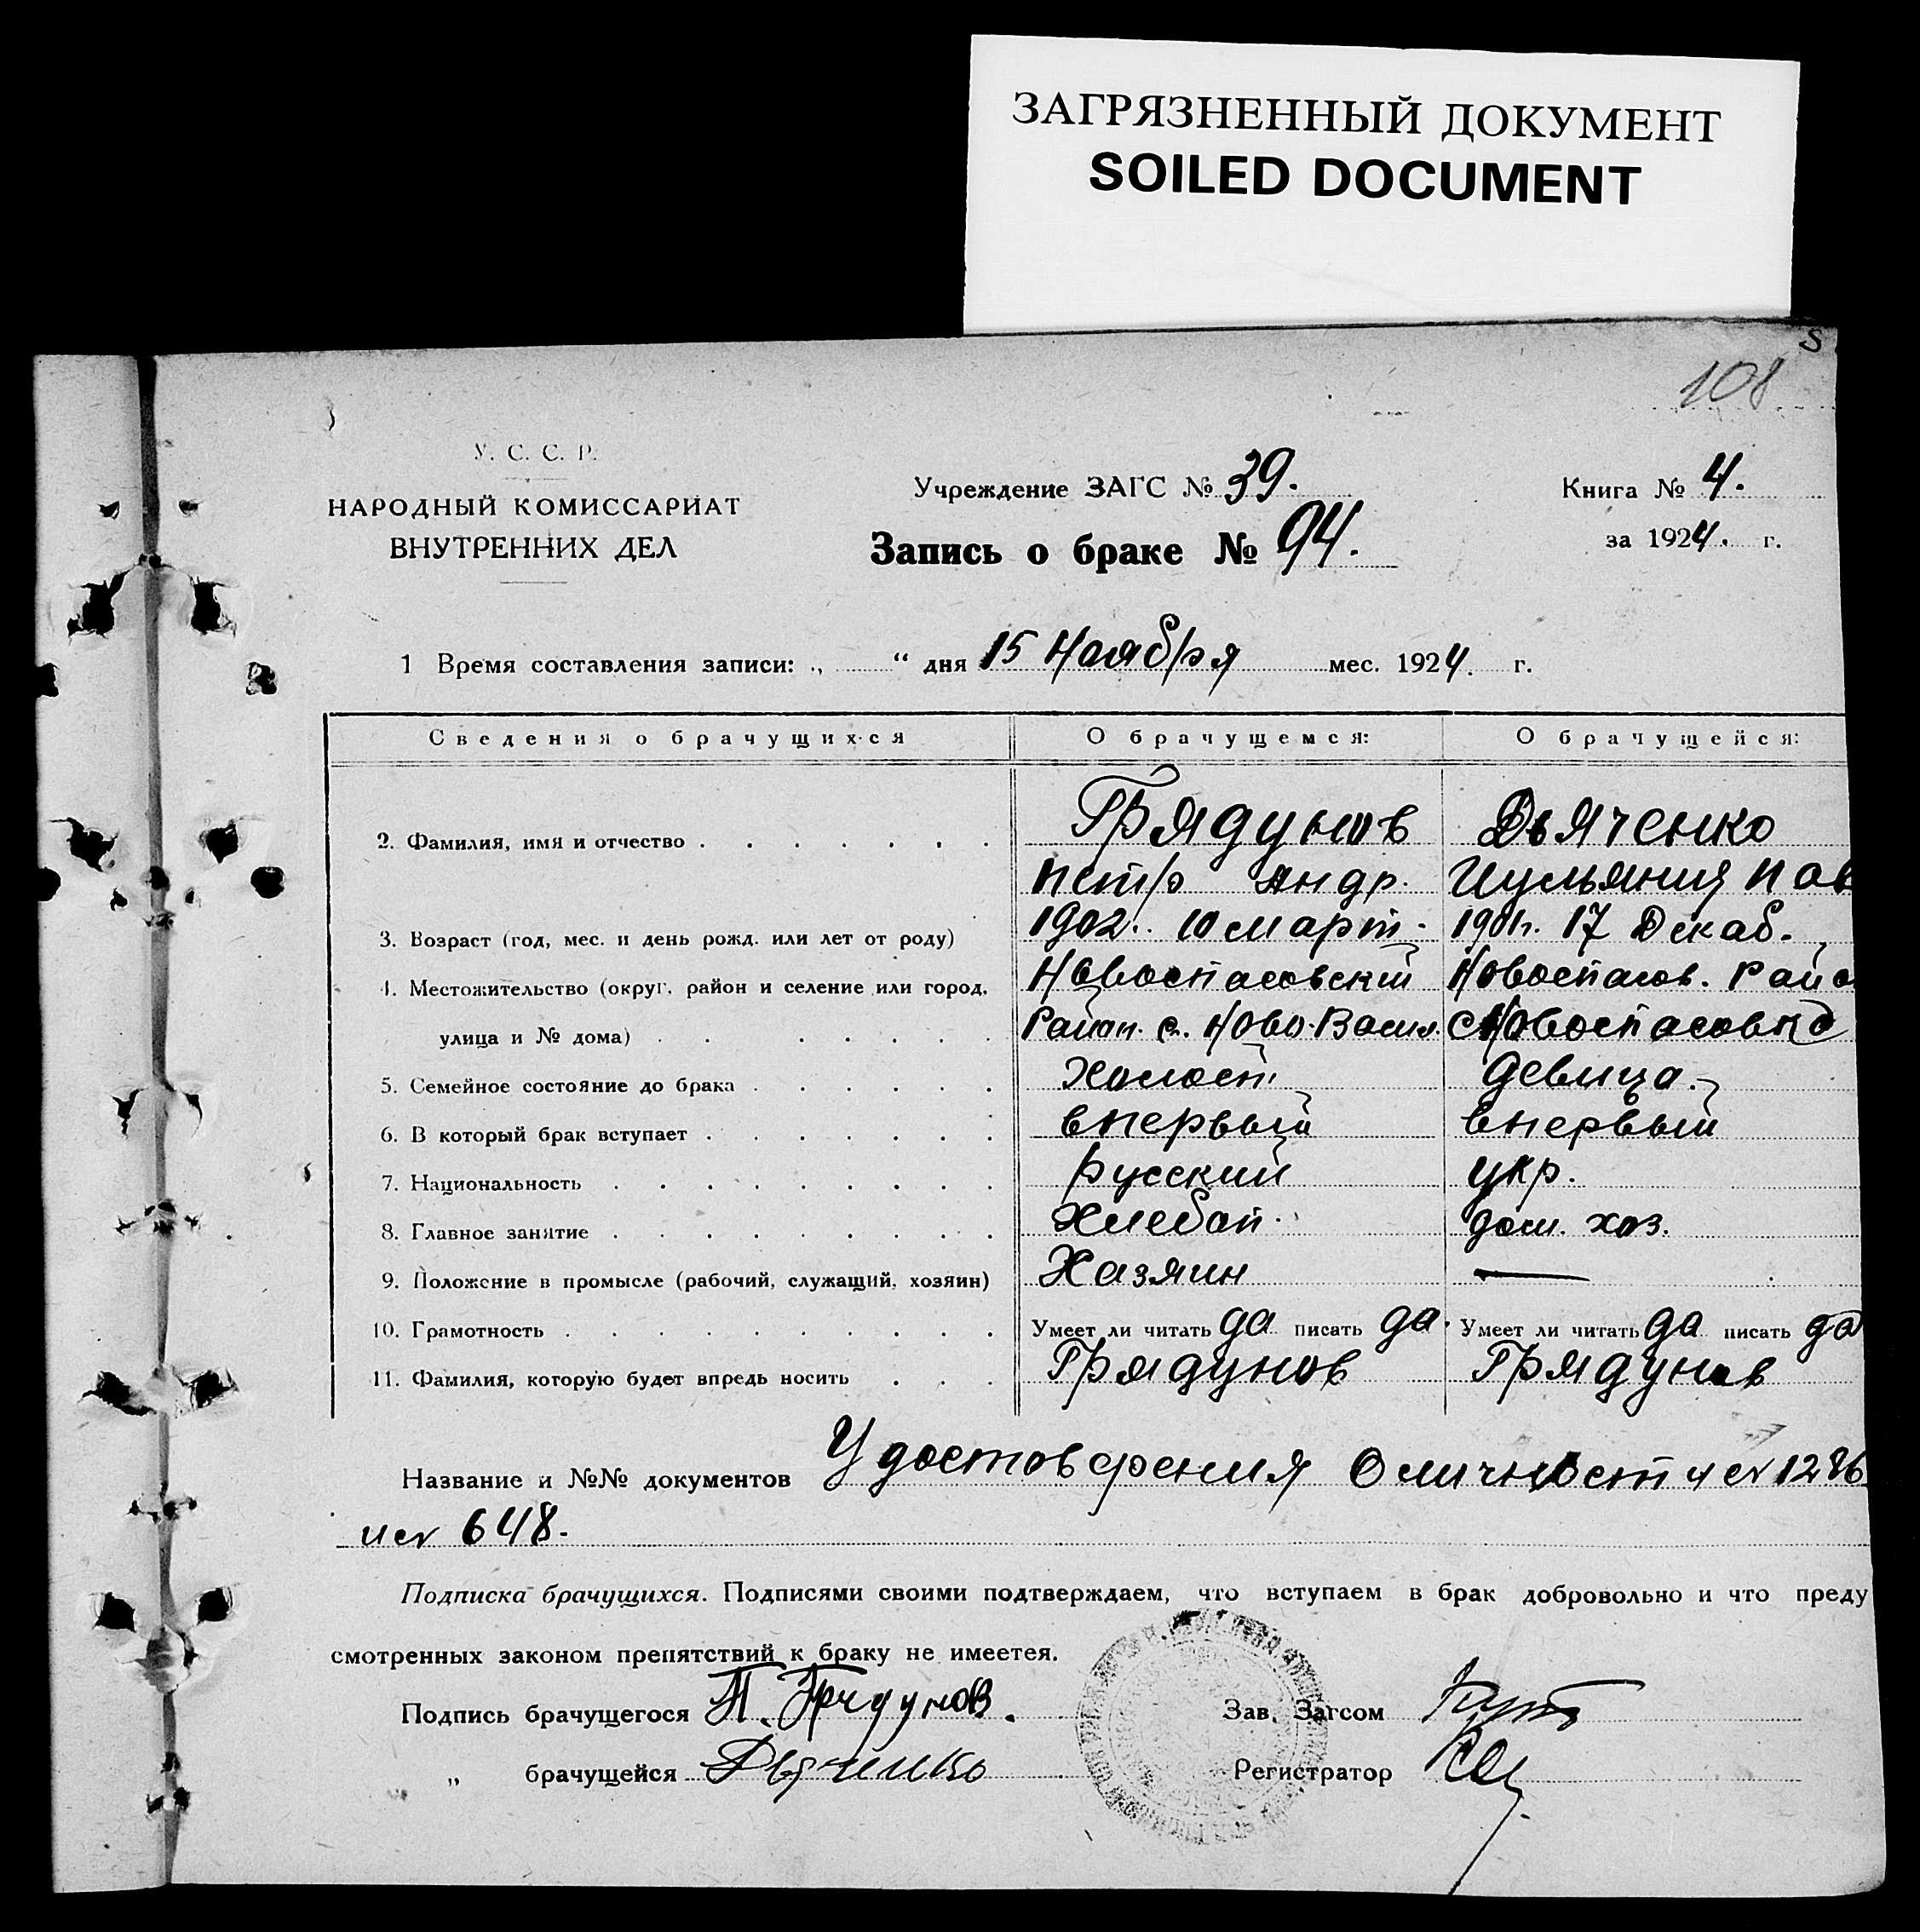 ЗАГРЯЗНЕННЫЙ ДОКУМЕНТ
SOILED DOCUMENT
S
108
У. С. С. Р.
НАРОДНЫЙ КОМИССАРИАТ
ВНУТРЕННИХ ДЕЛ
Учреждение ЗАГС № 39.
Запись о браке № 94.
Книга № 4.
за 1924. г.
1 Время составления записи: „ “ дня 15 Ноября мес. 1924. г.
Сведения о брачущихся О брачущемся: О брачущейся:
Грядунов Дьяченко
2. Фамилия, имя и отчество
Петр Андр. Иульяния Пав
3. Возраст (год, мес. и день рожд. или лет от роду) 1902. 10 март. 1901г. 17 Декаб.
4. Местожительство (округ, район и селение или город, Новоспасовский Новоспасов. Райо
улица и № дома) Район. с. Ново-Васил. с Новоспасовка
5. Семейное состояние до брака Холост. девица.
6. В который брак вступает впервый впервый
7. Национальность Русский укр.
8. Главное занятие Хлебоп. дом. хоз.
9. Положение в промысле (рабочий, служащий, хозяин) Хазяин —
10. Грамотность Умеет ли читать да писать да. Умеет ли читать да писать да
11. Фамилия, которую будет впредь носить Грядунов Грядунов
Название и №№ документов Удостоверения О личности № 1286
и № 648.
Подписка брачущихся. Подписями своими подтверждаем, что вступаем в брак добровольно и что преду
смотренных законом препятствий к браку не имеетея.
Подпись брачущегося П. Грядунов. Зав. Загсом
„ брачущейся Дьяченко Регистратор